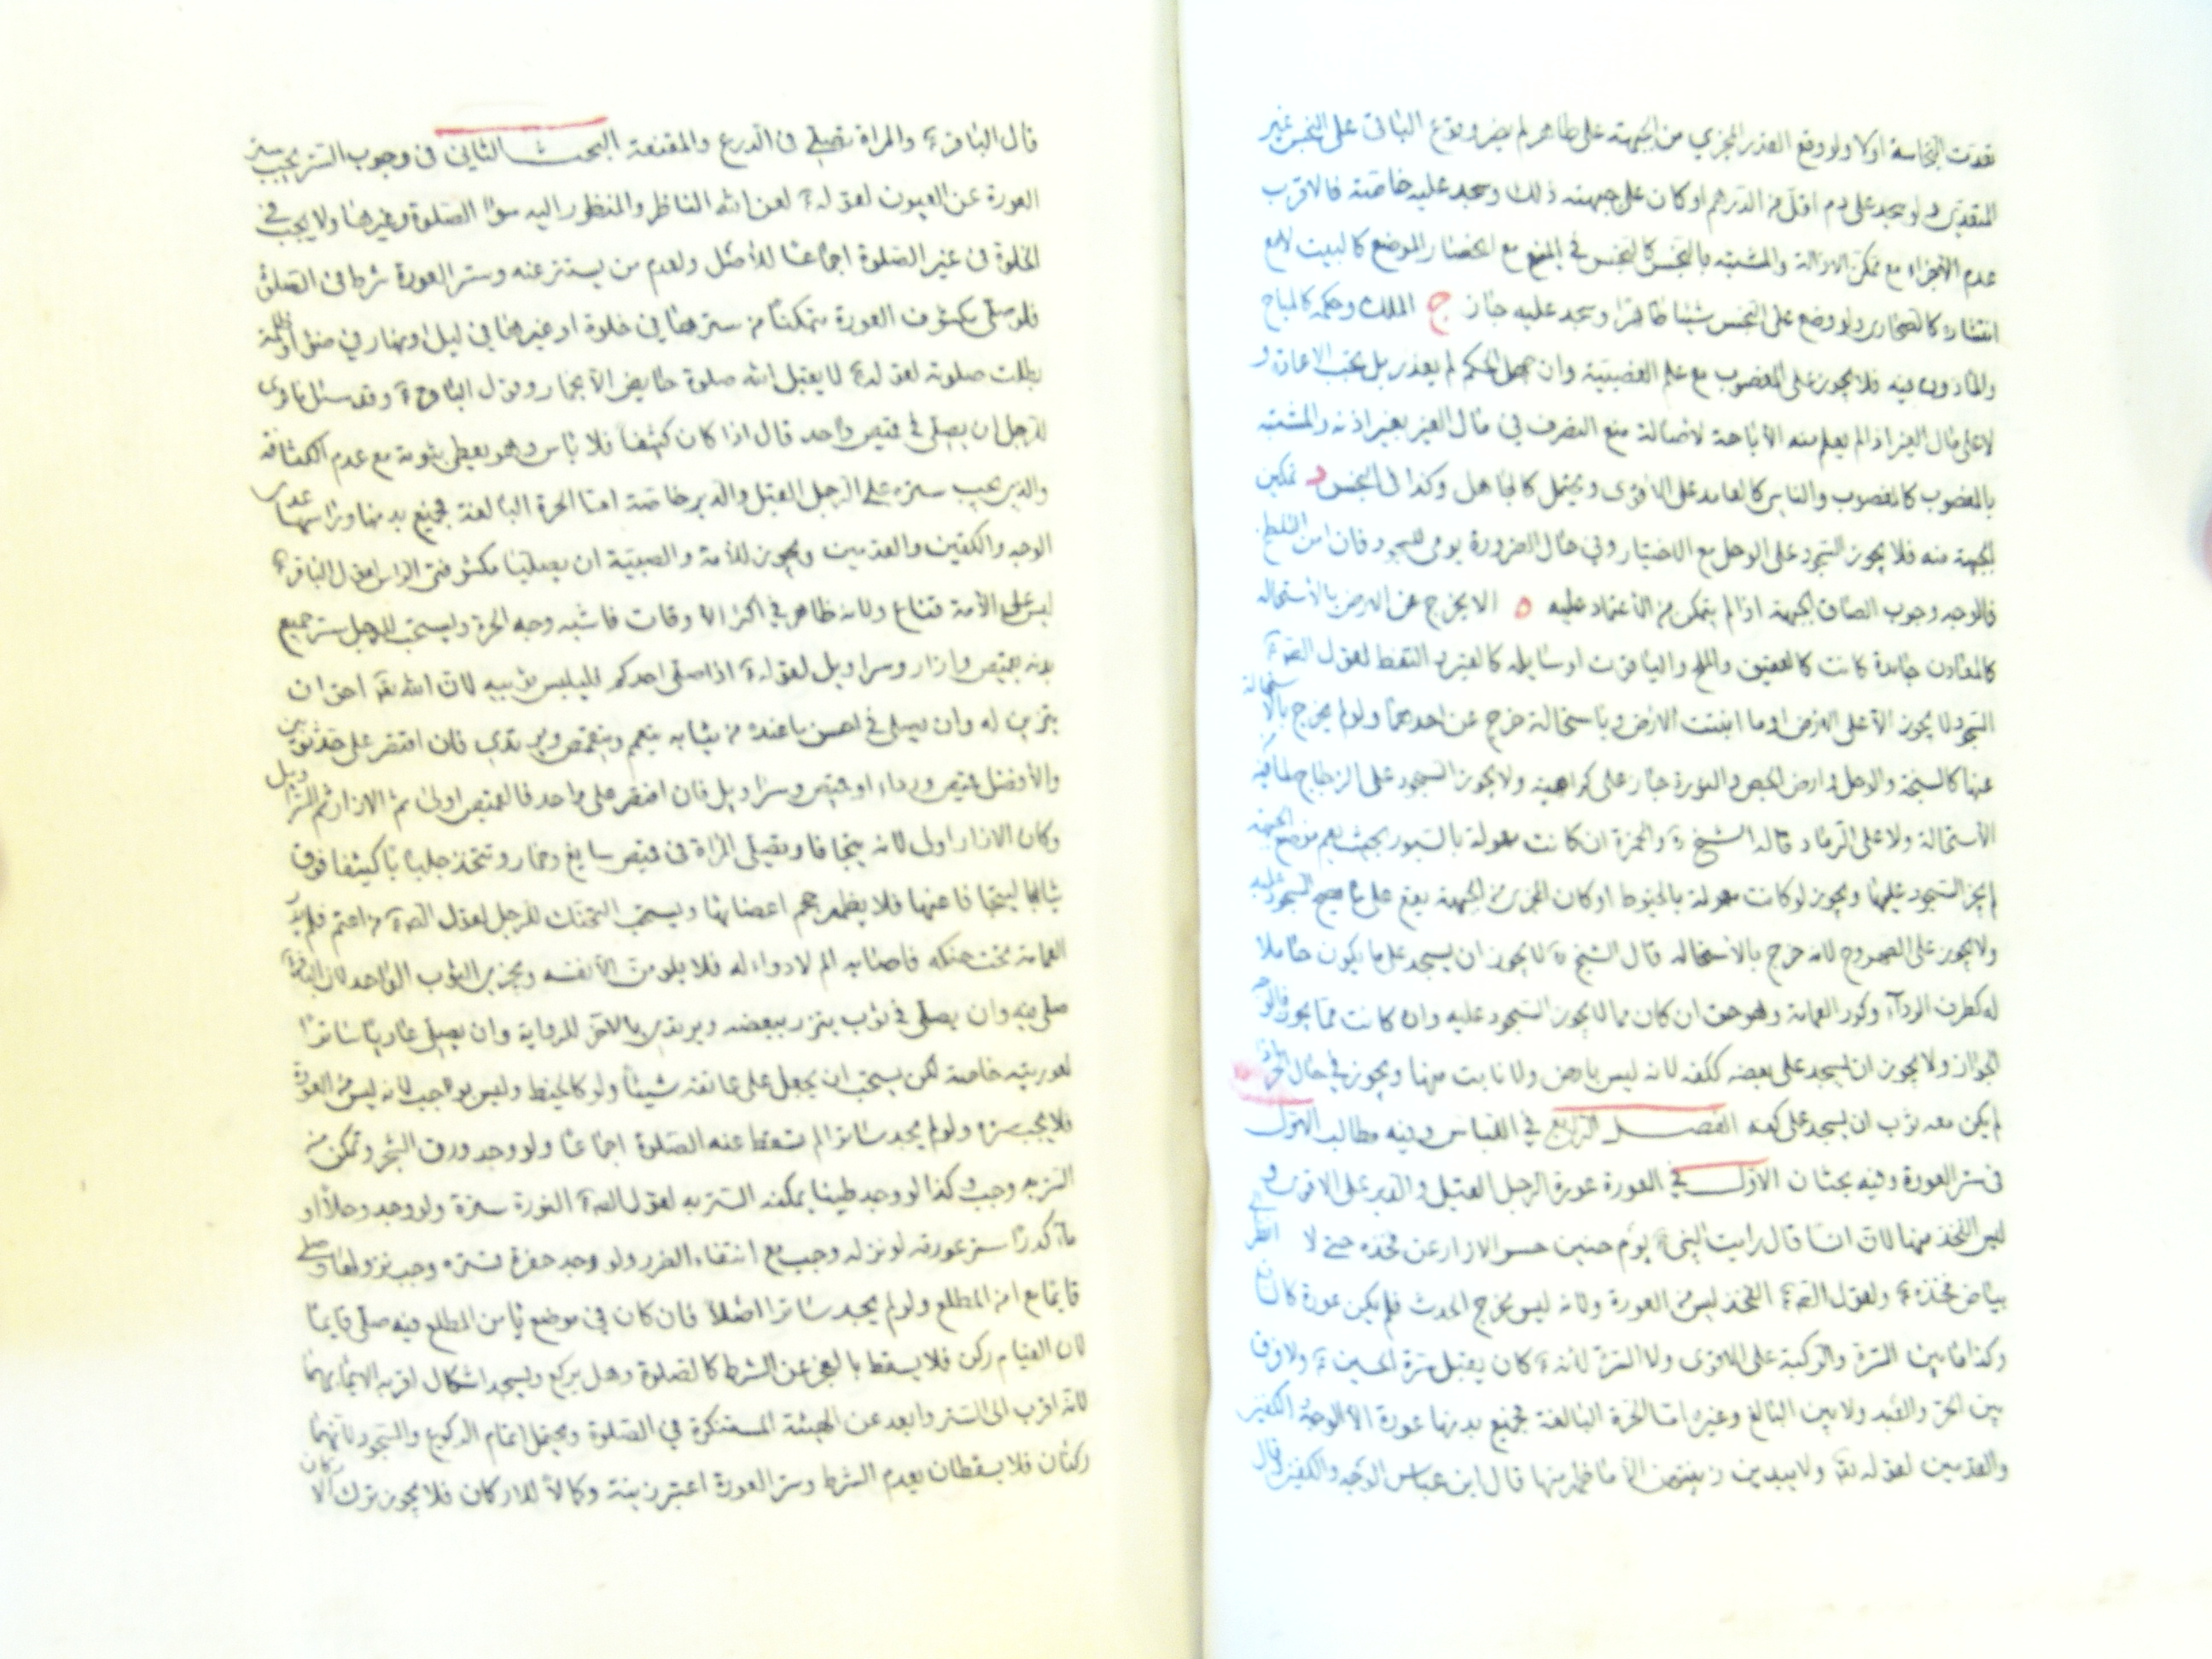 تعدت النجاسة اولا ولو وقع القدر المجزي من الجبهة على طاهر لم يضر وقوع الباقي على النجس غير
المتعدي ولو سجد على دم اقل من الدرهم او كان على جبهته ذلك وسجد عليه خاصة فالاقرب
عدم الاجزاء مع تمكن الازالة والمشتبه بالنجس كالنجس في المنع مع انحصار الموضع كالبيت لا مع
انتشاره كالصحاري ولو وضع على النجس شيئا طاهرا وسجد عليه جاز ج الملك وحكمه كالمباح
والماذون فيه فلا يجوز على المغصوب مع علم الغصبية وان جهل الحكم لم يعذر بل يجب الاعادة و
لا على مال الغير اذا لم يعلم منه الاباحة لاصالة منع التصرف في مال الغير بغير اذنه والمشتبه
بالمغصوب كالمغصوب والناسي كالعامد على الاقوى ويحتمل كالجاهل وكذا في النجس د تمكين
الجبهة منه فلا يجوز السجود على الوحل مع الاختيار وفي حال الضرورة يومى للسجود فان امن التلطخ
فالوجه وجوب الصاق الجبهة اذا لم يتمكن من الاعتماد عليه ه الا يخرج عن الارض بالاستحالة
كالمعادن جامدة كانت كالعقيق والملح والياقوت او سايلة كالقير والنفط لقول الص ع
السجود لا يجوز الا على الارض او ما انبتت الارض وباستحالته خرج عن احدهما ولو لم يخرج بالاستحالة
عنها كالسبخة والوحل وارض الجص والنورة جاز على كراهية ولا يجوز السجود على الزجاج لما فيه من
الاستحالة ولا على الرماد قاله الشيخ ره والخمرة ان كانت معمولة بالسيور بحيث يعم موضع الجبهة
لم يجز السجود عليها ويجوز لو كانت معمولة بالخيوط او كان المجزي من الجبهة يقع على ما يصح السجود عليه
ولا يجوز على الصهروج لانه خرج بالاستحالة قال الشيخ ره لا يجوز ان يسجد على ما يكون حاملا
له كطرف الرداء وكور العمامة وهو حق ان كان مما لا يجوز السجود عليه وان كانت مما يجوز فالوجه
الجواز ولا يجوز ان يسجد على بعضه ككفه لانه ليس بارض ولا نابت منها ويجوز في حال الحر اذا
لم يكن معه ثوب ان يسجد على كفه الفصل الرابع في اللباس وفيه مطالب الاول
في ستر العورة وفيه بحثان الاول في العورة عورة الرجل القبل والدبر على الاقوى و
ليس الفخذ منها لان انسا قال رايت النبي ع يوم حنين حسر الازار عن فخذه حتى لا انظر الى
بياض فخذه ع ولقول الص ع الفخذ ليس من العورة ولانه ليس بمخرج الحدث فلم يكن عورة كالساق
وكذا ما بين السرة والركبة على الاقوى ولا السرة لانه ع كان يقبل سرة الحسين ع ولا فرق
بين الحر والعبد ولا بين البالغ وغيره اما الحرة البالغة فجميع بدنها عورة الا الوجه الكفين
والقدمين لقوله تعه ولا يبدين زينتهن الا ما ظهر منها قال ابن عباس الوجه والكفين وقال
قال الباقر ع والمراة تصلي في الدرع والمقنعة البحث الثاني في وجوب الستر يجب ستر
العورة عن العيون لقوله ع لعن الله الناظر والمنظور اليه سواء الصلوة وغيرها ولا يجب في
الخلوة في غير الصلوة اجماعا للاصل ولعدم من يستتر عنه وستر العورة شرط في الصلوة
فلو صلى مكشوف العورة متمكنا من سترها في خلوة او غيرها في ليل او نهار في ضوء او ظلمة
بطلت صلوته لقوله ع لا يقبل الله صلوة حايض الا بخمار وقول الباقر ع وقد سئل ما ترى
للرجل ان يصلي في قميص واحد قال اذا كان كثيفا فلا باس وهو يعطي ثبوته مع عدم الكثافة
والذي يجب ستره على الرجل القبل والدبر خاصة اما الحرة البالغة فجميع بدنها وراسها عدا
الوجه والكفين والقدمين ويجوز للامة والصبية ان يصليا مكشوفتي الراس لقول الباقر ع
ليس على الامة قناع ولانه ظاهر في اكثر الاوقات فاشبه وجه الحرة ويستحب للرجل ستر جميع
بدنه بقميص وازار وسراويل لقوله ع اذا صلى احدكم فليلبس ثوبيه لان الله تعه احق ان
يتزين له وان يصلي في احسن ما عنده من ثيابه يتعمم ويتقمص ويرتدي فان اقتصر على ثوبين
والافضل قميص ورداء او قميص وسراويل فان اقتصر على واحد فالقميص اولى ثم الازار ثم السراويل
وكان الازار اولى لانه يتجافا وتصلي المراة في قميص سابغ وخمار وتتخذ جلبابا كثيفا فوق
ثيابها ليتجافا عنها فلا يظهر حجم اعضائها ويستحب التحنك للرجل لقول الص ع من اعتم فلم يدر
العمامة تحت حنكه فاصابه الم لا دواء له فلا يلومن الا نفسه ويجزي الثوب الواحد لان الباقر ع
صلى فيه وان يصلي في ثوب يتزر ببعضه ويرتدي بالاخر للرواية وان يصلي عاريا ساترا
لعورتيه خاصة لكن يستحب ان يجعل على عاتقه شيئا ولو كالخيط وليس بواجب لانه ليس من العورة
فلا يجب ستره ولو لم يجد ساترا لم تسقط عنه الصلوة اجماعا ولو وجد ورق الشجر وتمكن من
الستر به وجب وكذا لو وجد طينا يمكنه الستر به لقول الص ع النورة سترة ولو وجد وحلا او
ماء كدرا ستر عورته لو نزله وجب مع انتفاء الضرر ولو وجد حفرة تستره وجب نزولها وصلى
قايما مع امن المطلع ولو لم يجد ساترا اصلا فان كان في موضع يامن المطلع فيه صلى قايما
لان القيام ركن فلا يسقط بالعجز عن الشرط كالصلوة وهل يركع ويسجد اشكال اقربه الايماء بهما
لانه اقرب الى الستر وابعد عن الهيئة المستنكرة في الصلوة ويحتمل اتمام الركوع والسجود لانهما
ركنان فلا يسقطان بعدم الشرط وستر العورة اعتبر زينة وكمالا للاركان فلا يجوز ترك الاركان